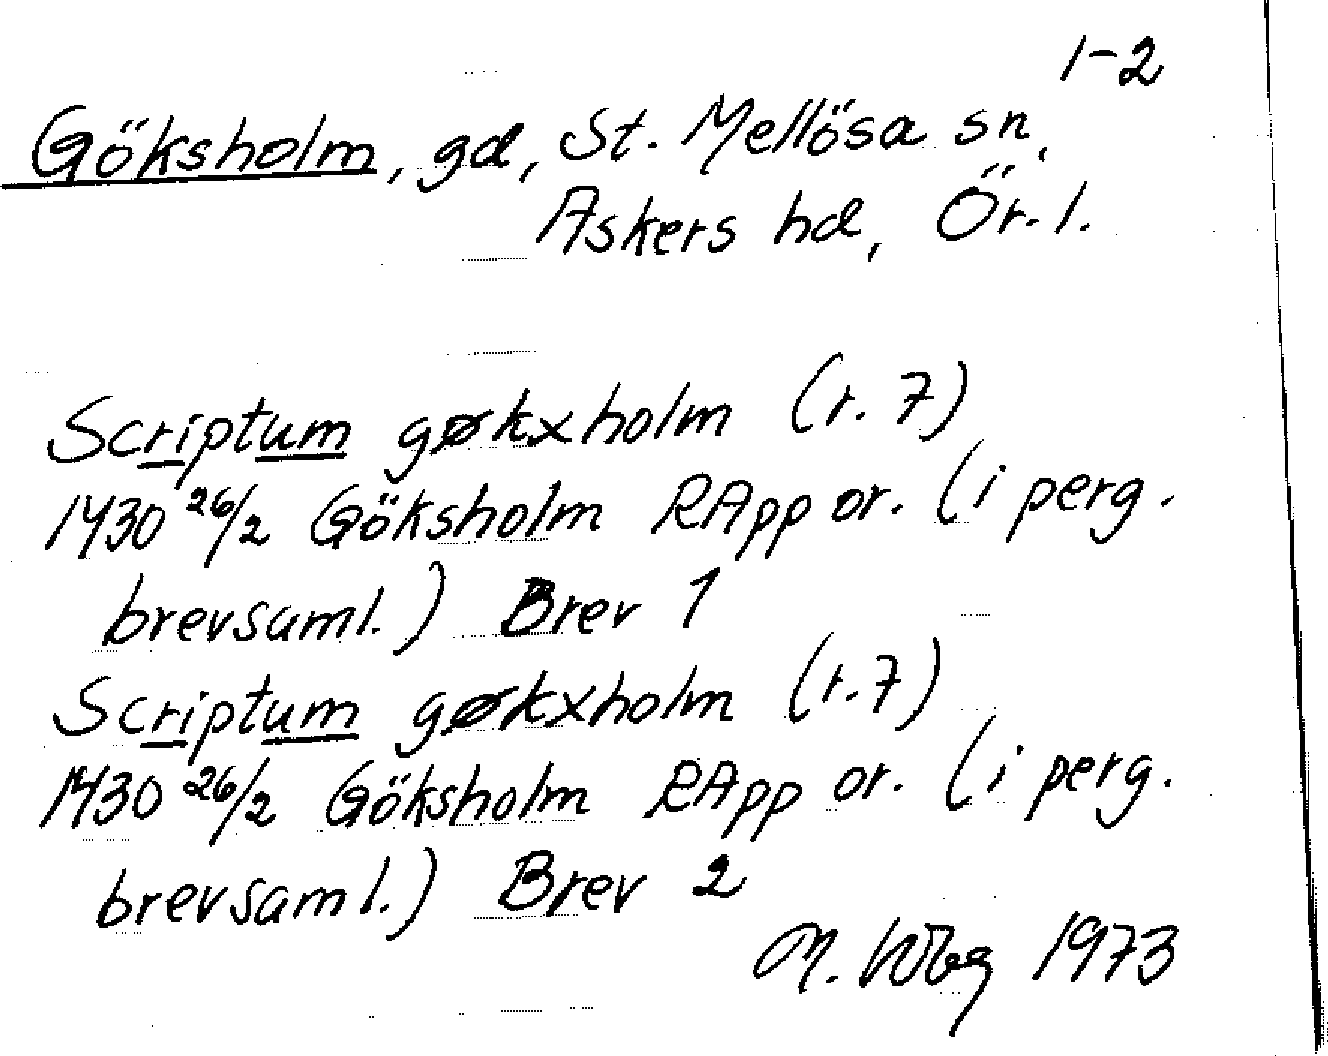 1-2
Göksholm, gd, St. Mellösa sn,
Askers hd, Ör. l.
Scriptum gørkxholm (r. 7)
1430 26/2 Göksholm RApp or. (i perg.
brevsaml.) Brev 1
Scriptum gørkxholm (r. 7)
1430 26/2 Göksholm RApp or. (i perg.
brevsaml.) Brev 2
M. 1973